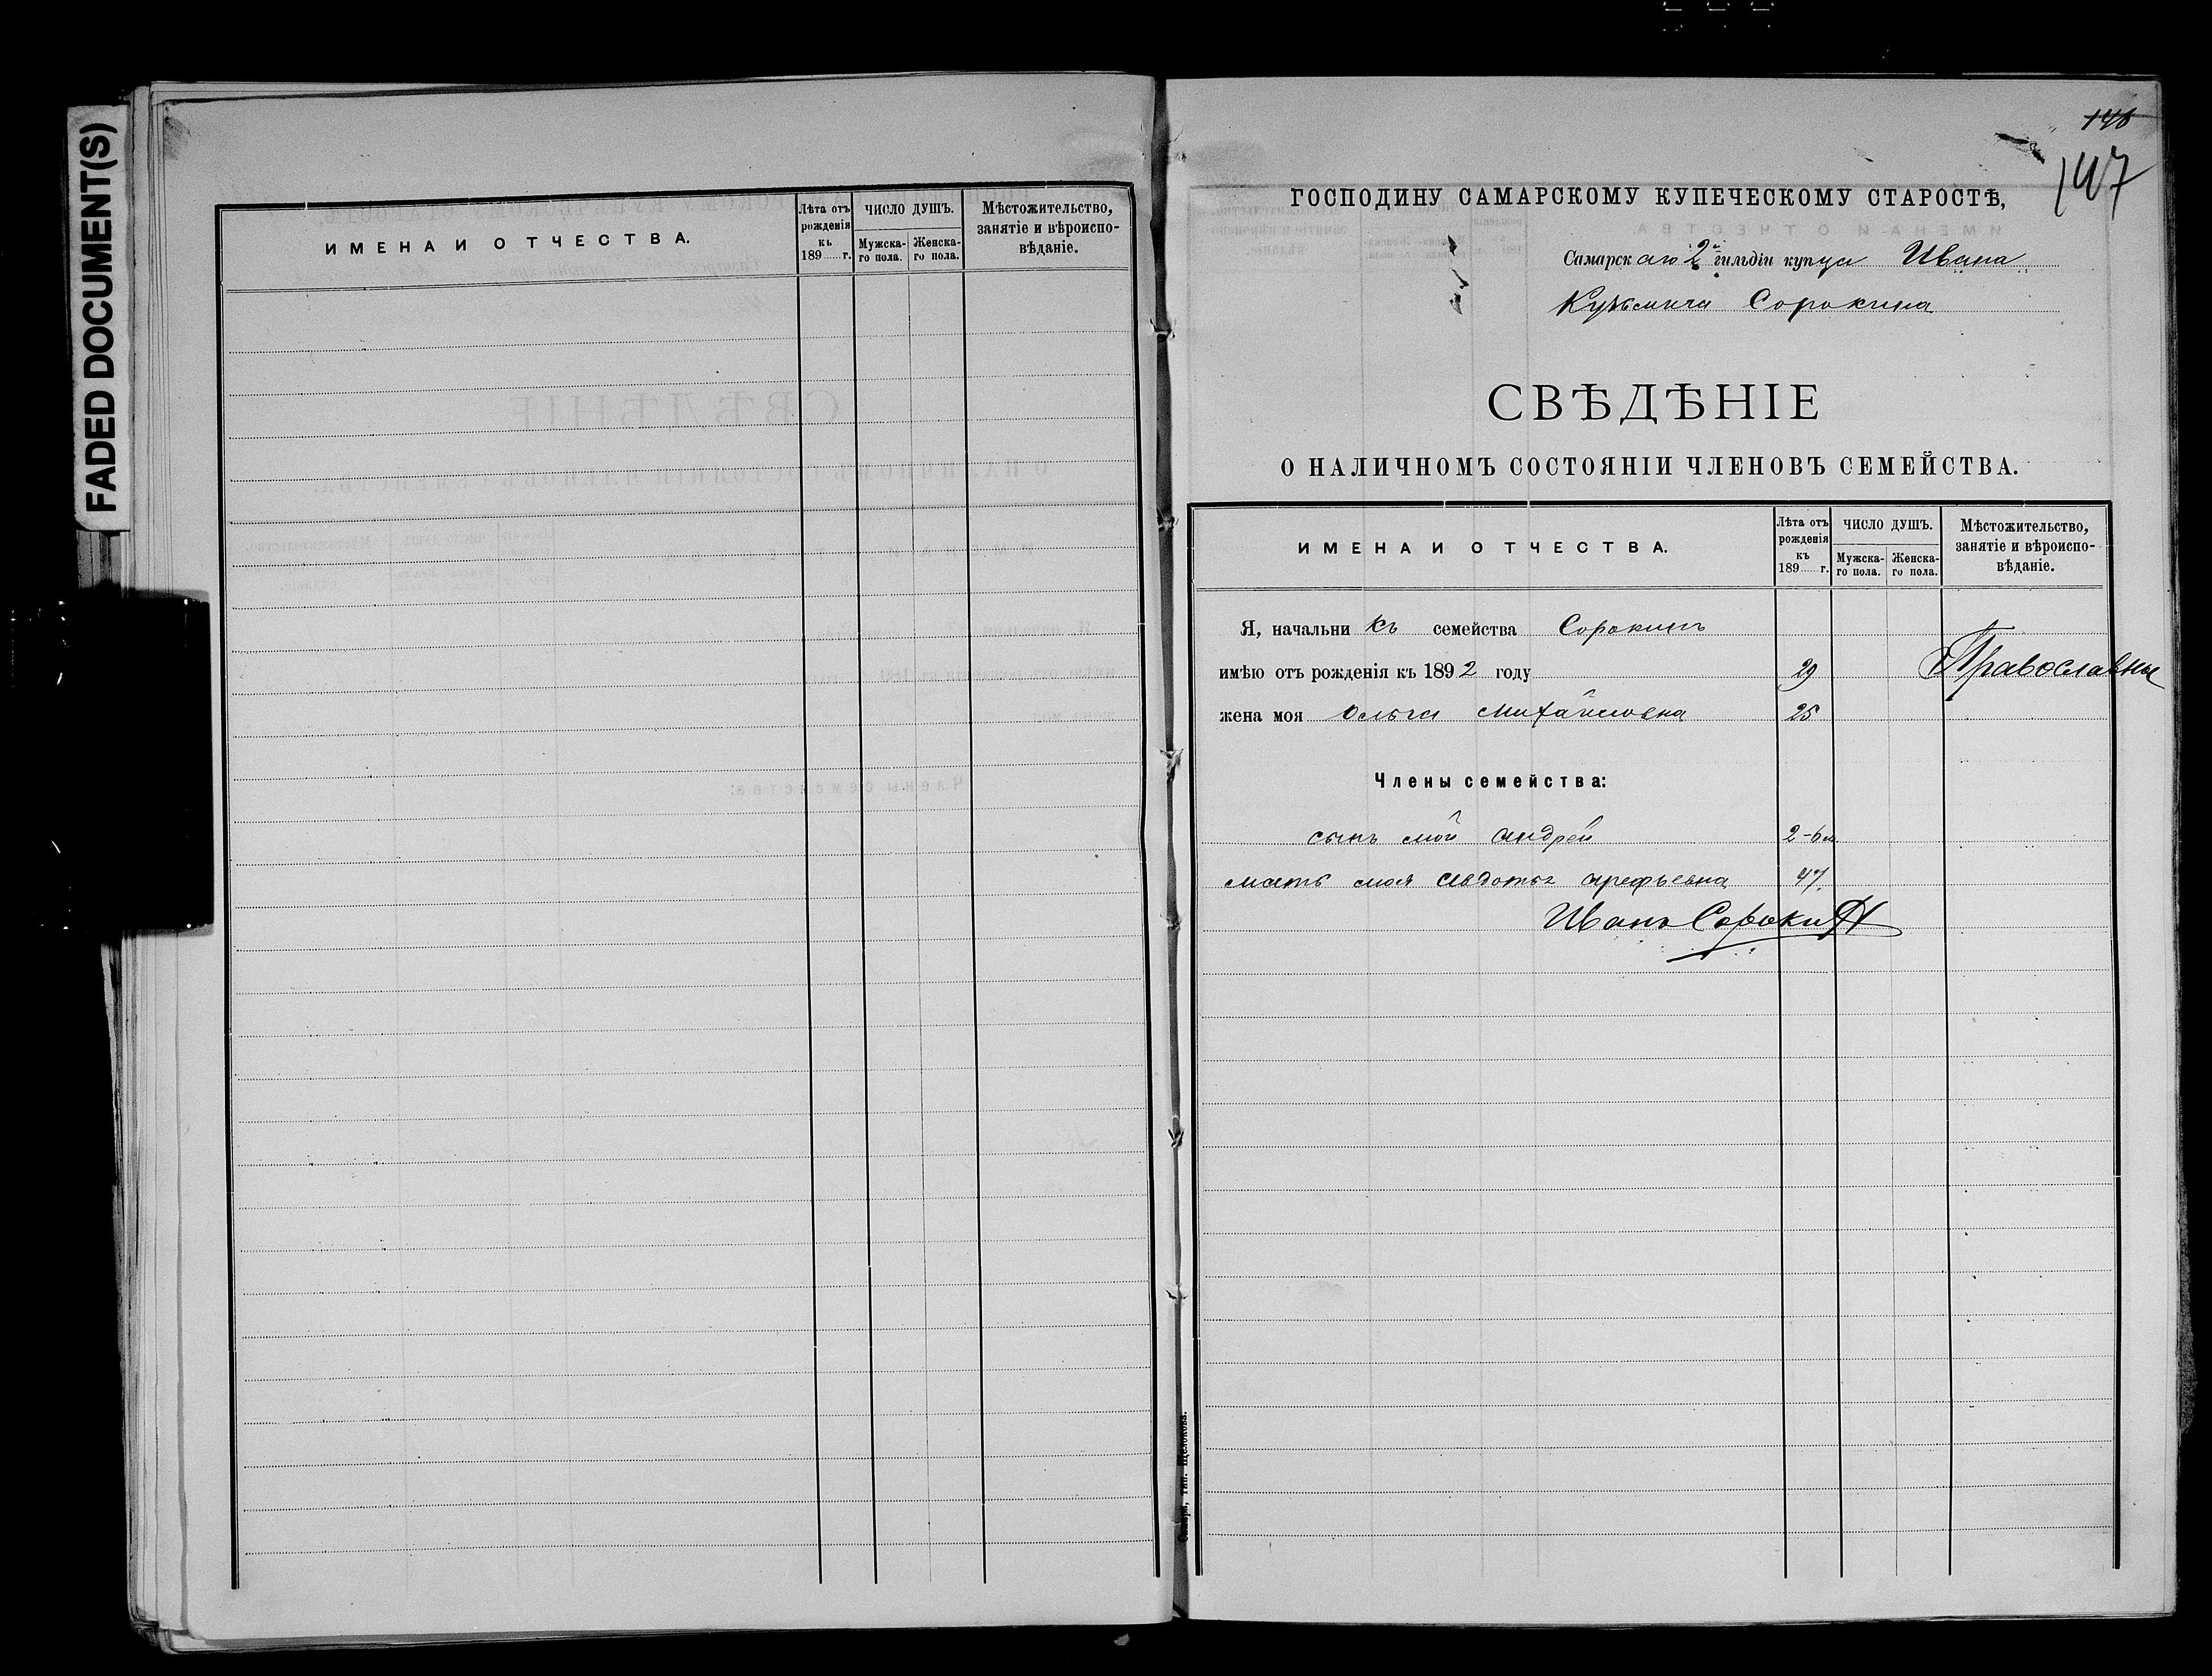 FADED DOCUMENT(S)
ИМЕНА И ОТЧЕСТВА.
Лѣта отъ рожденія къ 189 г.
ЧИСЛО ДУШЪ.
Мужска-го пола.
Женска-го пола.
Мѣстожительство, занятіе и вѣроиспо-вѣданіе.
146
147
ГОСПОДИНУ САМАРСКОМУ КУПЕЧЕСКОМУ СТАРОСТѢ,
Самарскаго 2й гильдіи купца Ивана
Кузьмича Сорокина
СВѢДѢНІЕ
О НАЛИЧНОМЪ СОСТОЯНІИ ЧЛЕНОВЪ СЕМЕЙСТВА.
ИМЕНА И ОТЧЕСТВА.
Лѣта отъ рожденія къ 189 г.
ЧИСЛО ДУШЪ.
Мужска-го пола.
Женска-го пола.
Мѣстожительство, занятіе и вѣроиспо-вѣданіе.
Я, начальникъ семейства Сорокинъ
имѣю отъ рожденія къ 1892 году 29 Православные
жена моя Ольга Михайловна 25
Члены семейства:
сынъ мой Андрей 2-6 м.
мать моя Авдотья Арефьевна 47
Иванъ Сорокин
Самара, Тип. Щелокова.